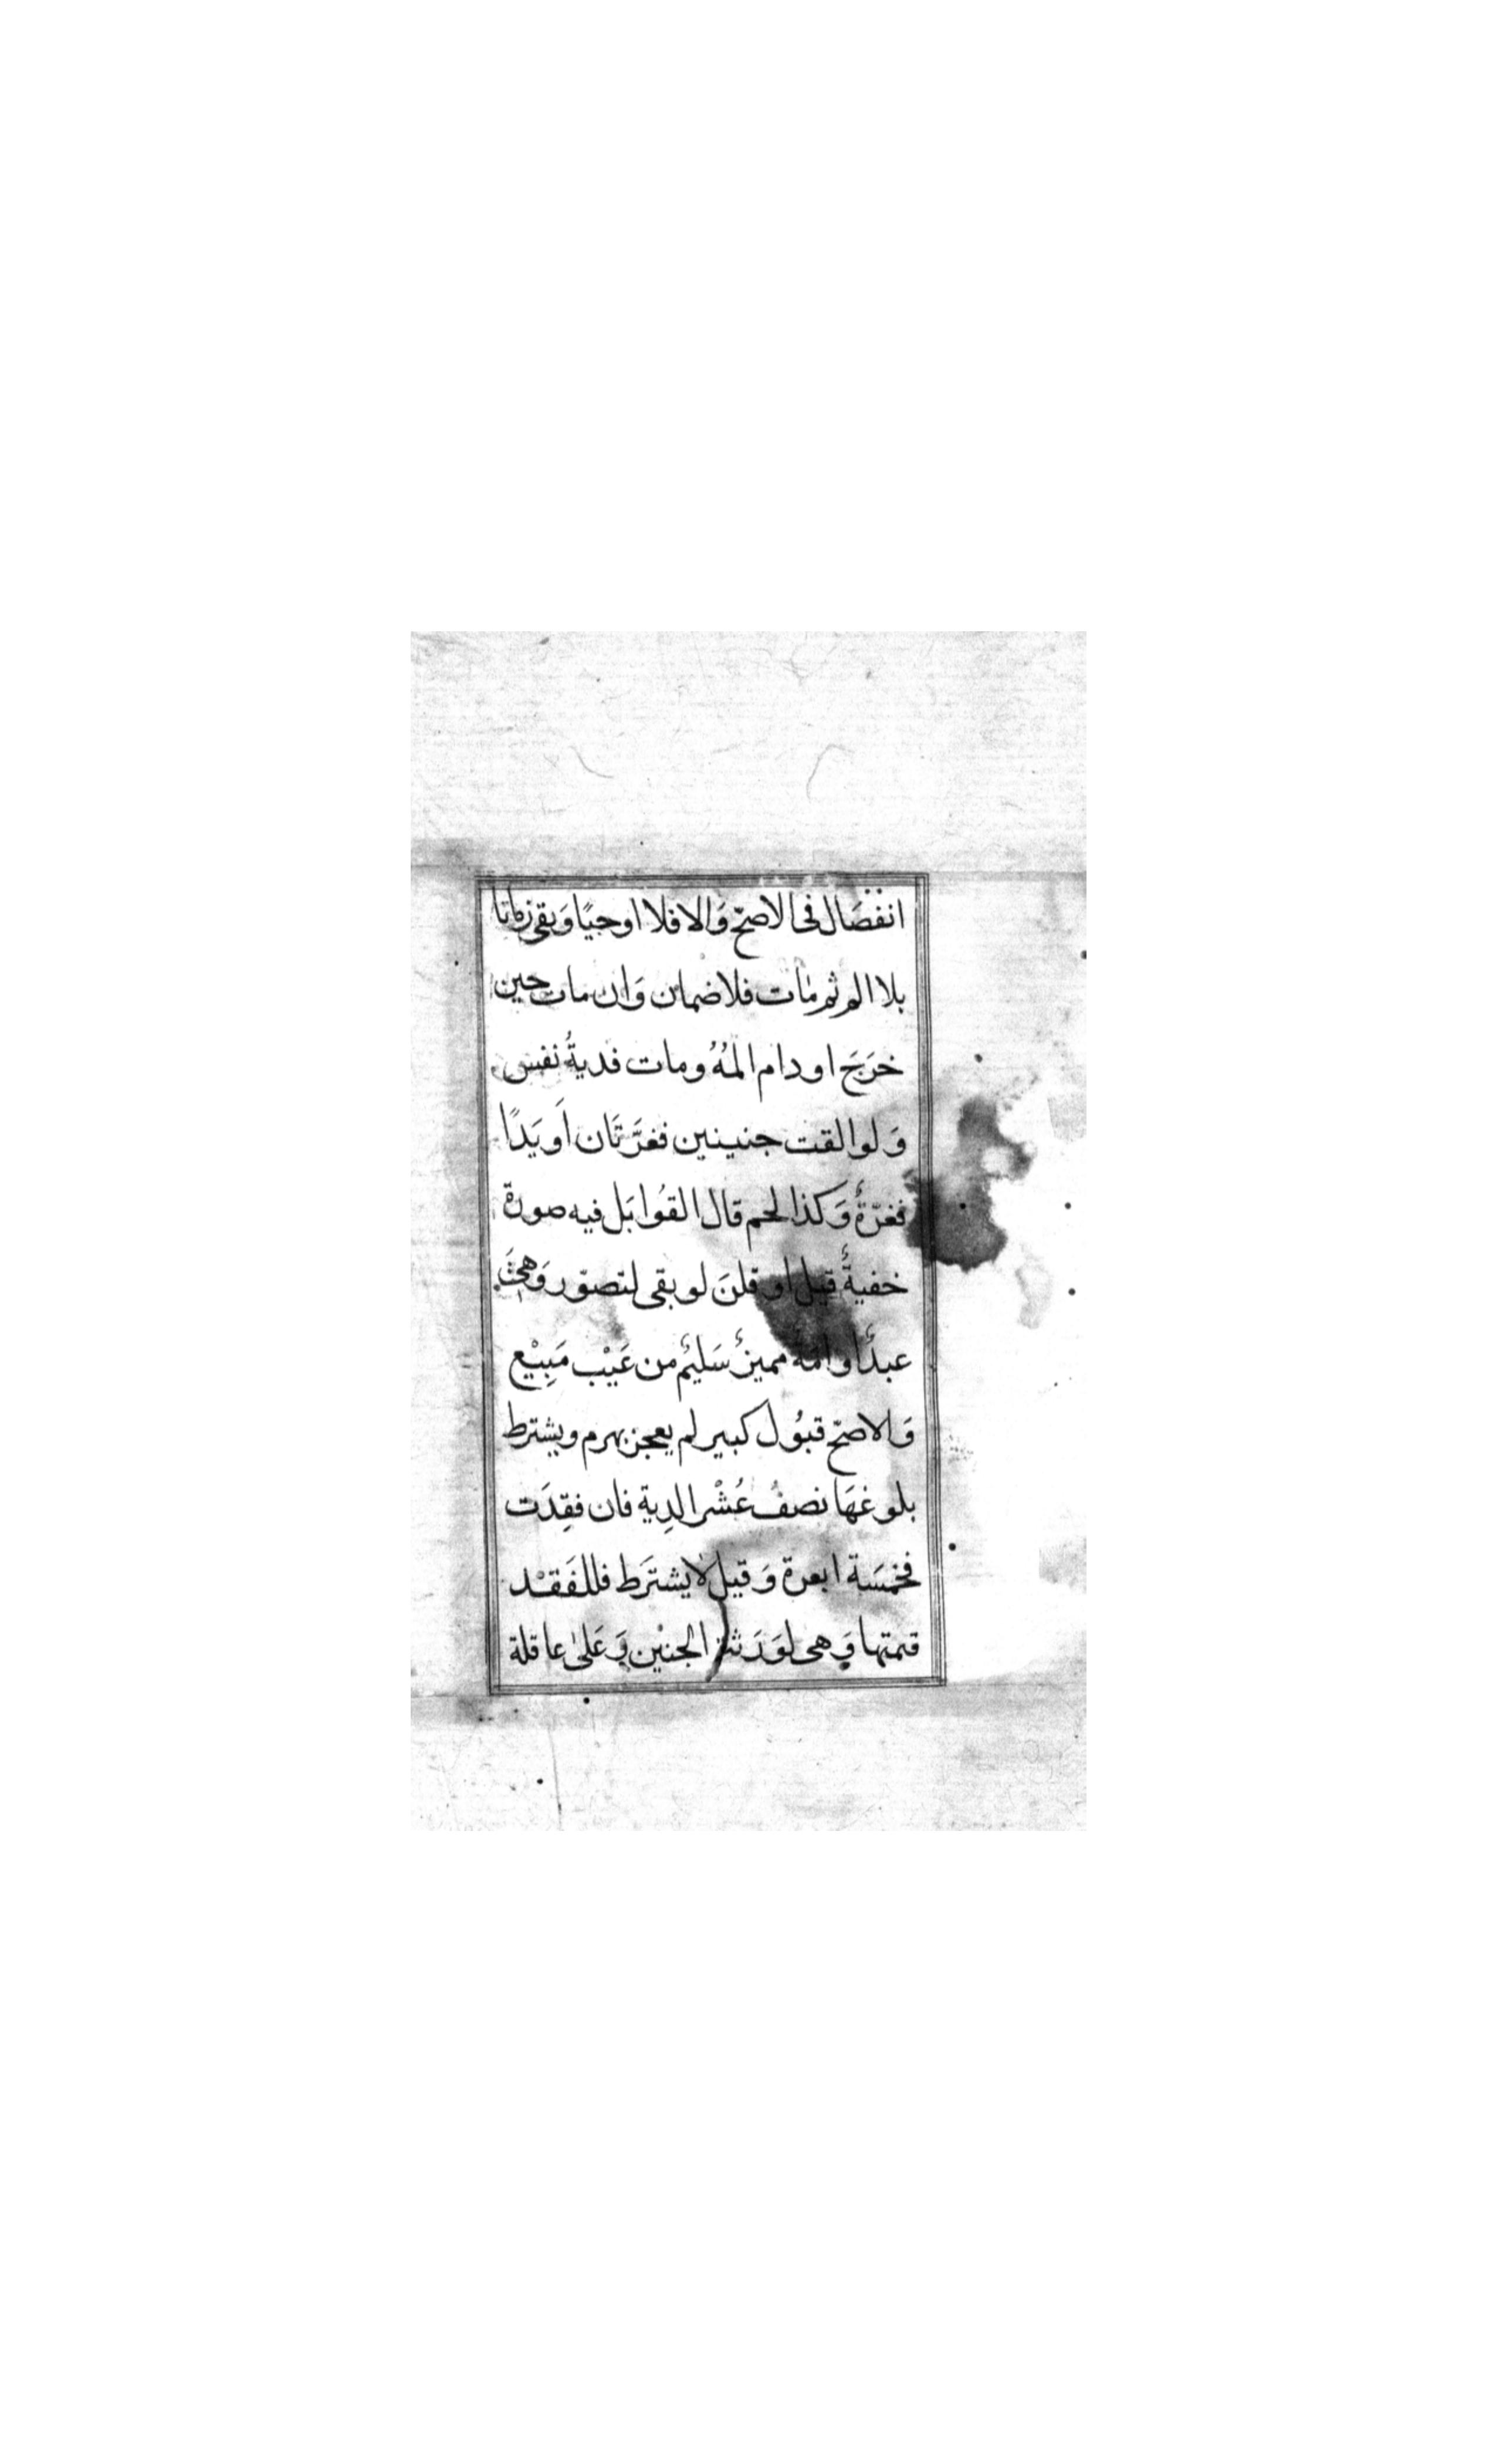 انفصَال فى الاصحّ وَالا فلا اوحيًا وَبقى زمانا
بلا الم ثم مات فلا ضمان وَان مات حين
خرَجَ او دام المُهُ ومات فدية نفس
وَلو القت جنينين فغرَّتَان اَو يَدًا
فغرّةٌ وَكذا لحم قال القوُابَل فيه صورة
خفيةٌ قيل او قلنَ لو بقى لتصوّر وَهى
عبدٌ او امَةٌ مميزٌ سَليمٌ من عَيْب مَبِيْع
وَالاصحّ قبُول كبير لم يعجز بهرم ويشترط
بلوغهَا نصفُ عُشْر الدِية فان فقِدَت
فخمسَة ابعرة وَقيل لا يشترَط فللفَقْد
قيمتها وَهى لوَرَثة الجنيْن وَعَلىٰ عاقلة